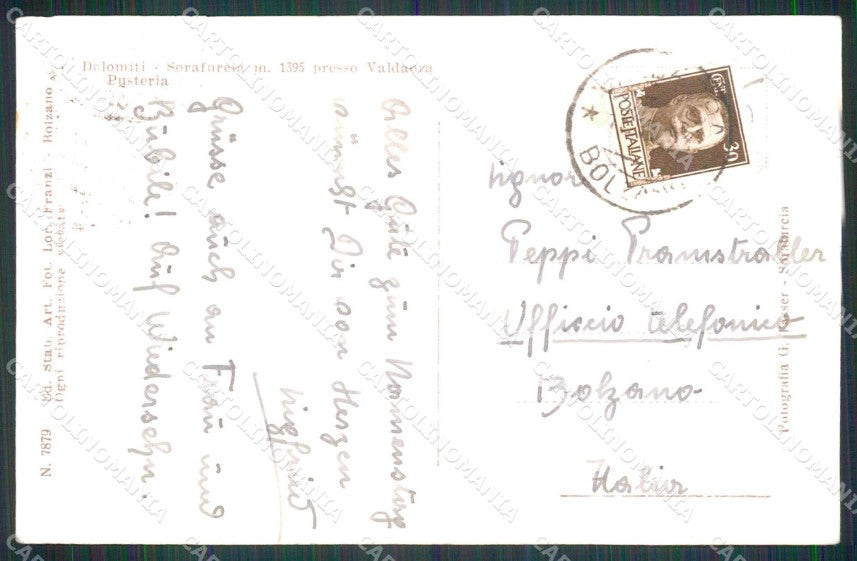 Dolomiti - Sorafurcia m. 1395 presso Valdaora
Pusteria
N. 7879 Ed. Stab. Art. Fot. Lor. Franzl - Bolzano
Ogni riproduzione vietata
Alles Gute zum Namenstag
wünscht Dir von Herzen
Siegfried
Grüsse auch an Frau und
Bubile! Auf Wiedersehn.
POSTE ITALIANE
30
BOL
Signor
Peppi Pramstraller
Ufficio telefonico
Bolzano
Italia
Fotografia G. - Sorafurcia
CARTOLINOMANIA